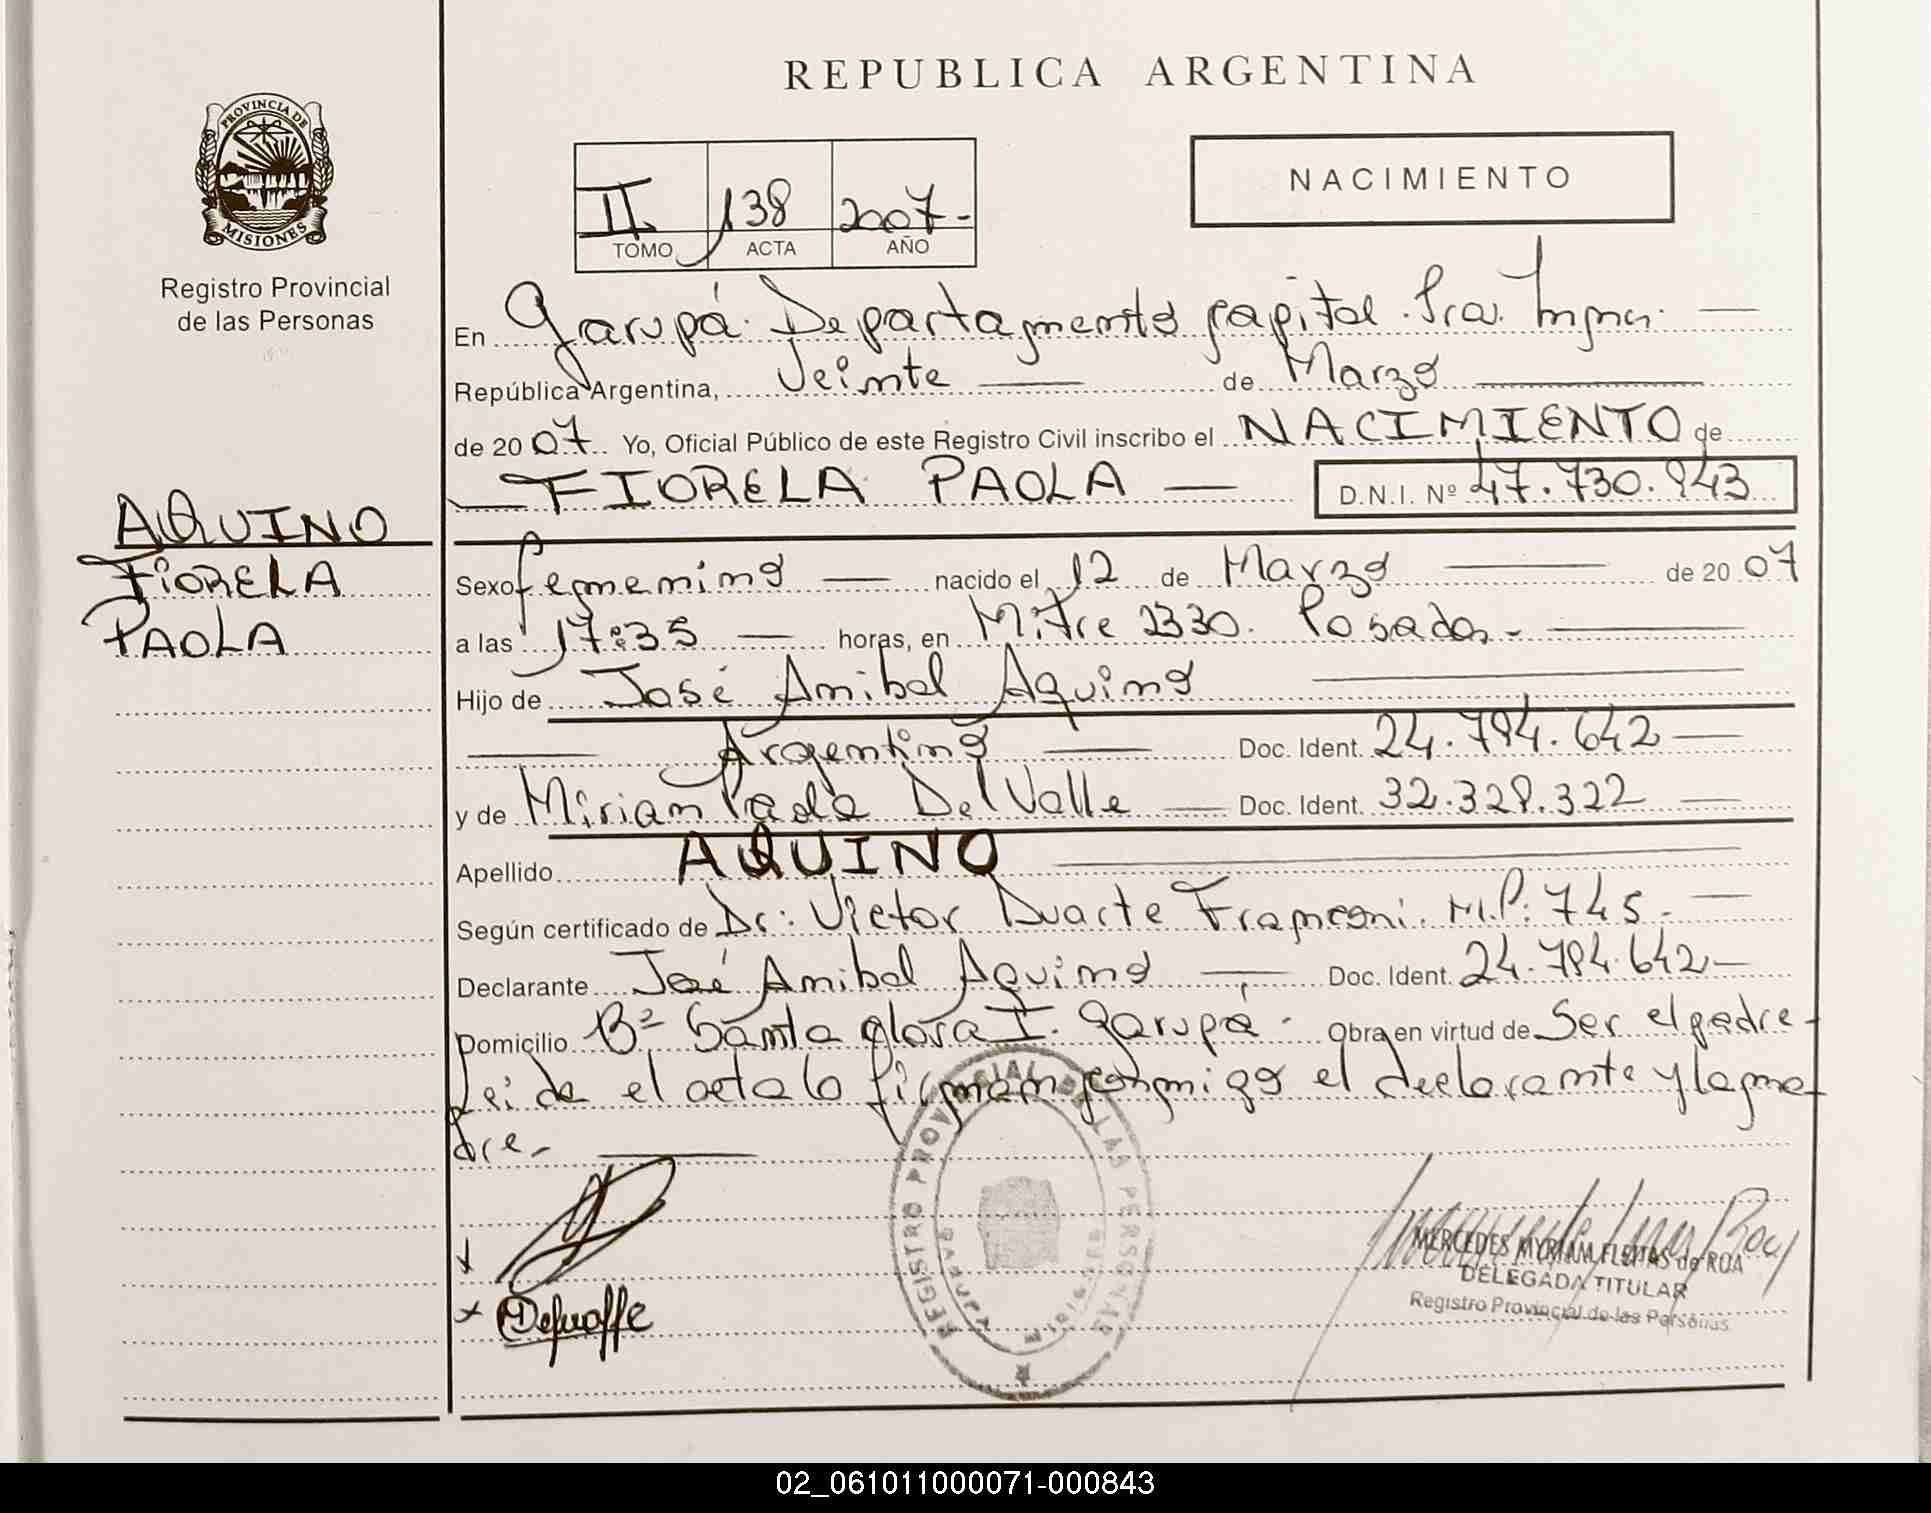 REPUBLICA ARGENTINA
PROVINCIA DE
MISIONES
Registro Provincial
de las Personas
II 138 2007-
TOMO ACTA AÑO
NACIMIENTO
En Garupá. Departamento Capital. Pcia. Mnes. —
República Argentina, Veinte — de Marzo —
de 2007 Yo, Oficial Público de este Registro Civil inscribo el NACIMIENTO de
— FIORELA PAOLA — D.N.I. Nº 47.730.943
AQUINO
FIORELA
PAOLA
Sexo femenino — nacido el 12 de Marzo — de 2007
a las 17:35 — horas, en Mitre 2330. Posadas. —
Hijo de José Anibal Aquino —
— Argentino — Doc. Ident. 24.794.642 —
y de Miriam Paola Del Valle — Doc. Ident. 32.328.322 —
Apellido AQUINO —
Según certificado de Dr: Victor Duarte Franconi. M.P: 745. —
Declarante José Anibal Aquino — Doc. Ident. 24.794.642 —
Domicilio Bº Santa Clara I. Garupá. Obra en virtud de Ser el padre-
Leida el acta la firman conmigo el declarante y la ma-
dre. —
REGISTRO PROVINCIAL DE LAS PERSONAS
GARUPA
MISIONES
MERCEDES MYRIAM FLEITAS de ROA
DELEGADA TITULAR
Registro Provincial de las Personas
02_061011000071-000843